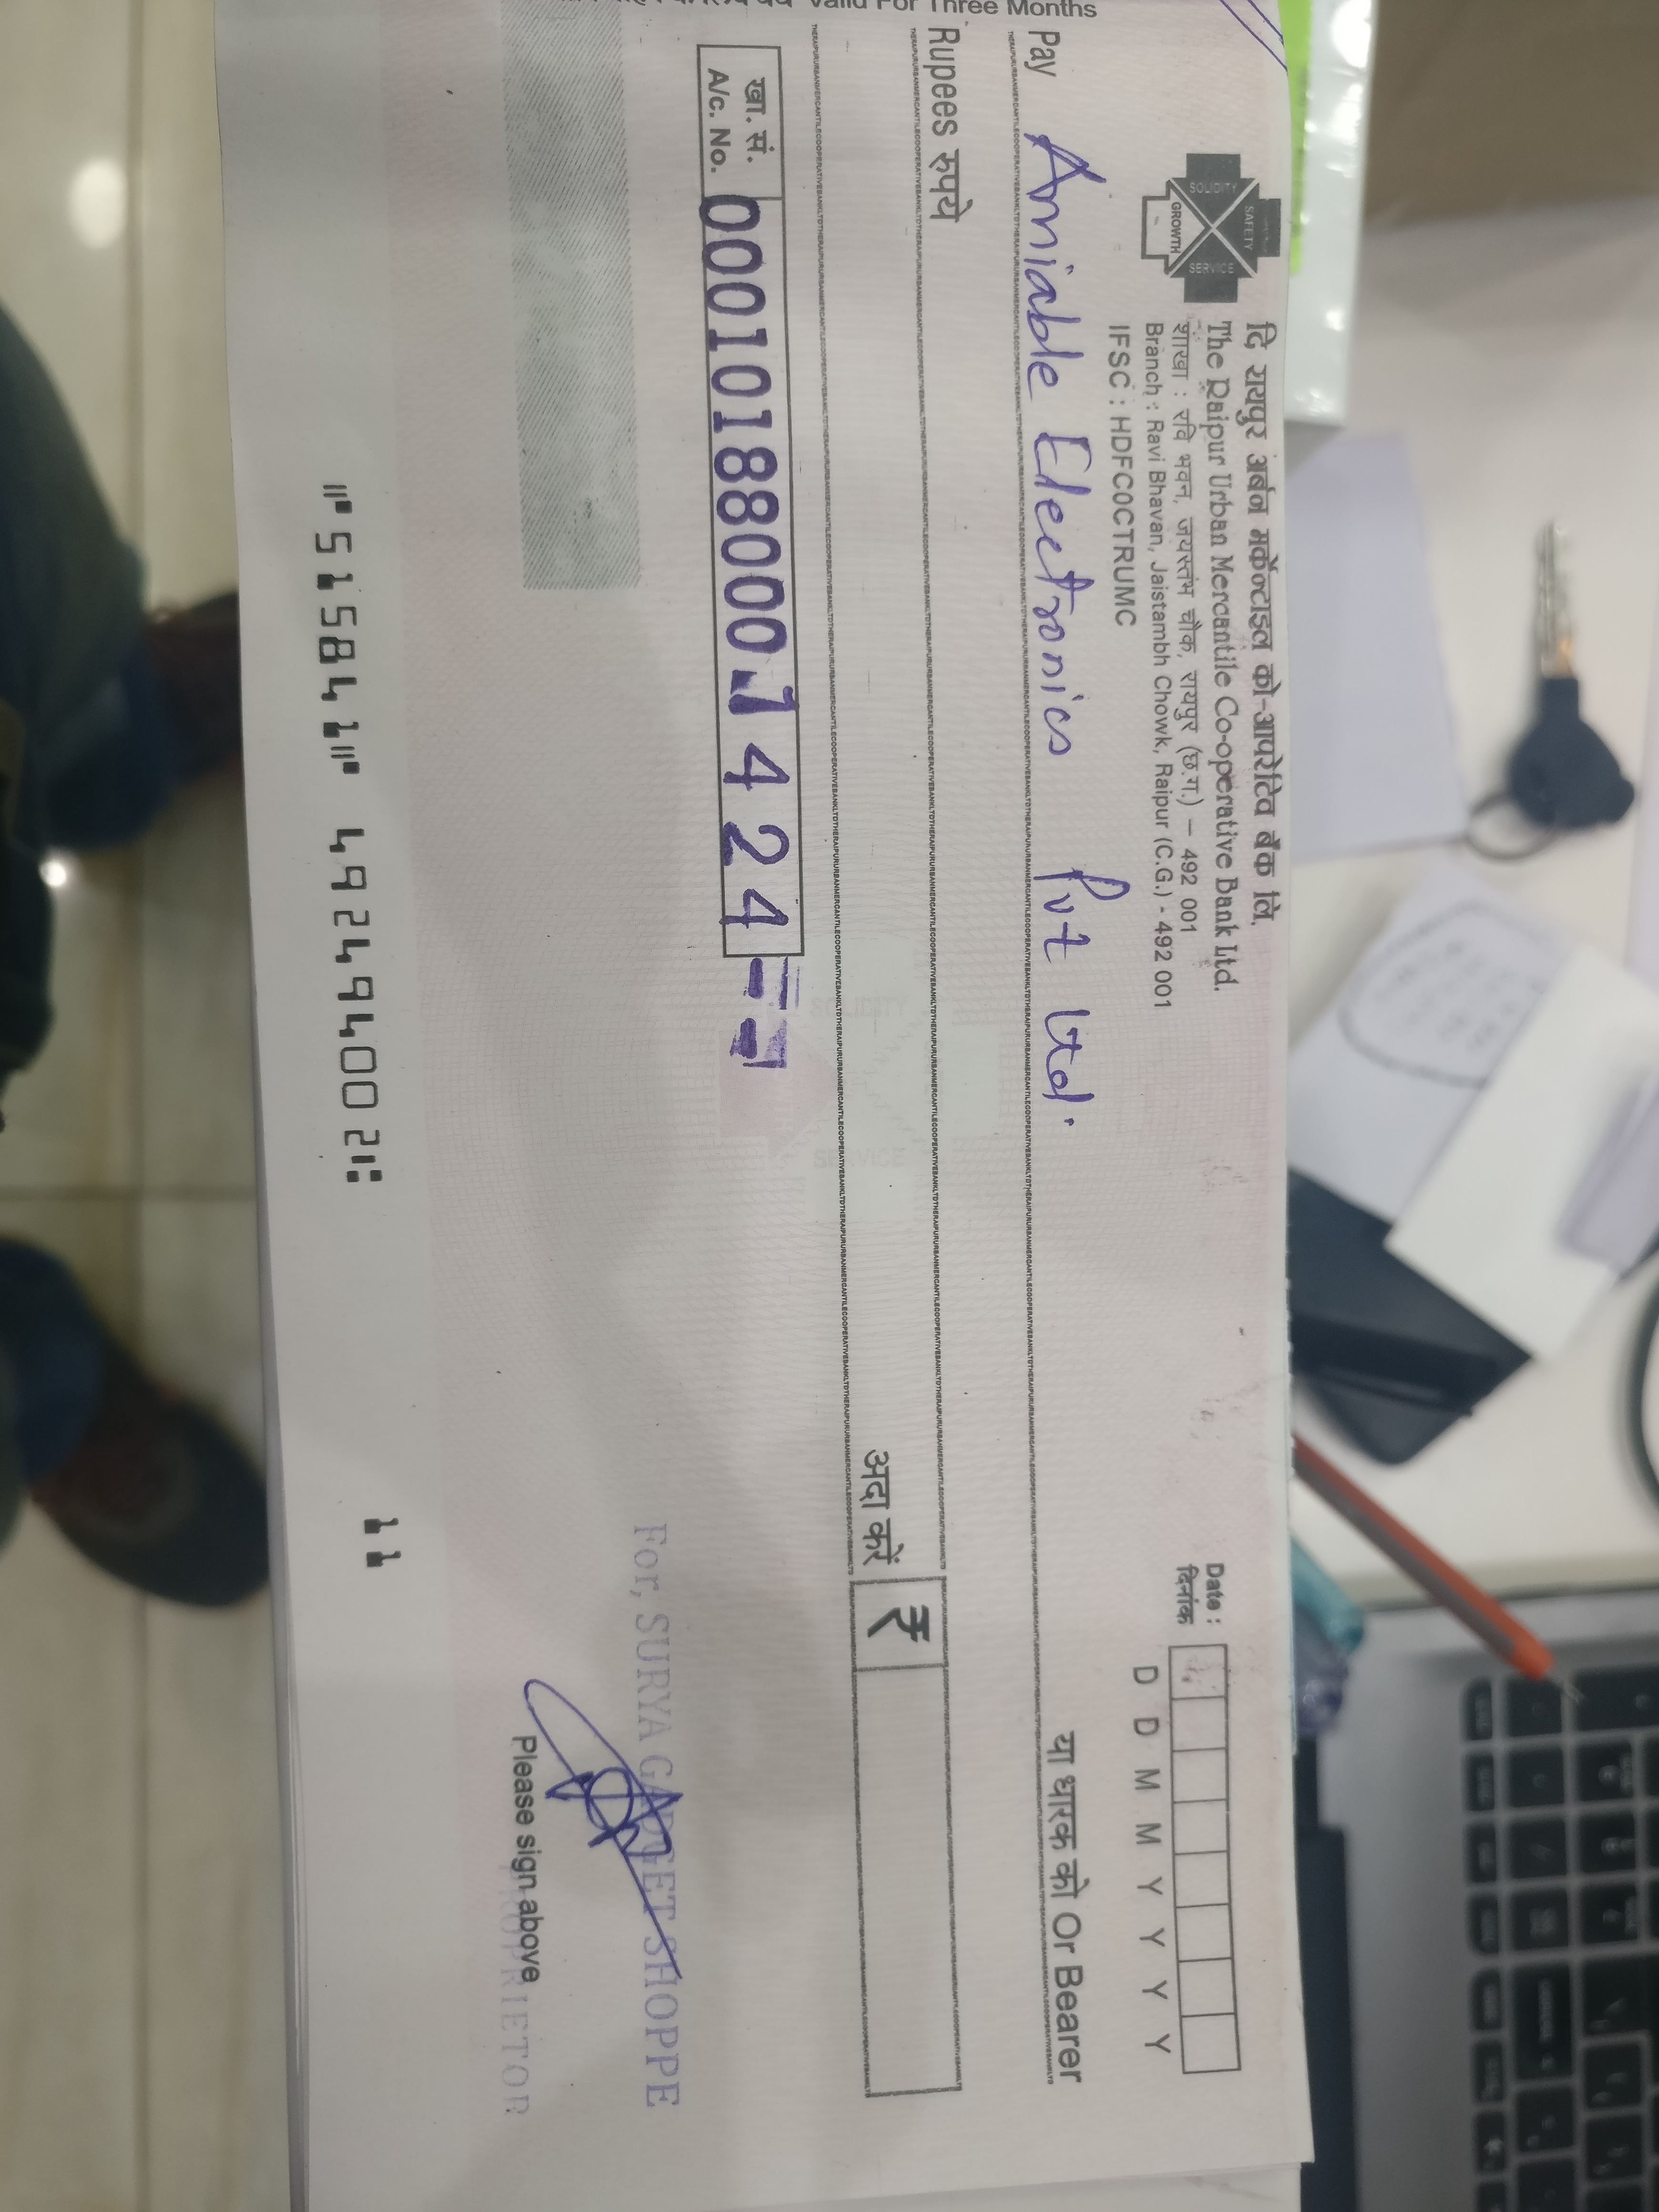 Valid For Three Months
SOLIDITY
SAFETY
GROWTH
SERVICE
दि रायपुर अर्बन मर्केन्टाइल को-आपरेटिव बैंक लि.
The Raipur Urban Mercantile Co-operative Bank Ltd.
शाखा : रवि भवन, जयस्तंभ चौक, रायपुर (छ.ग.) – 492 001
Branch : Ravi Bhavan, Jaistambh Chowk, Raipur (C.G.) - 492 001
IFSC : HDFC0CTRUMC
Date :
दिनांक
D D M M Y Y Y Y
Pay Amiable Electronics Pvt Ltd.
या धारक को Or Bearer
Rupees रुपये
अदा करें ₹
खा. सं.
A/c. No. 000101880001424
SOLIDITY
SERVICE
For, SURYA GADGET SHOPPE
Please sign above
PROPRIETOR
⑈515841⑈ 492494002⑆ 11